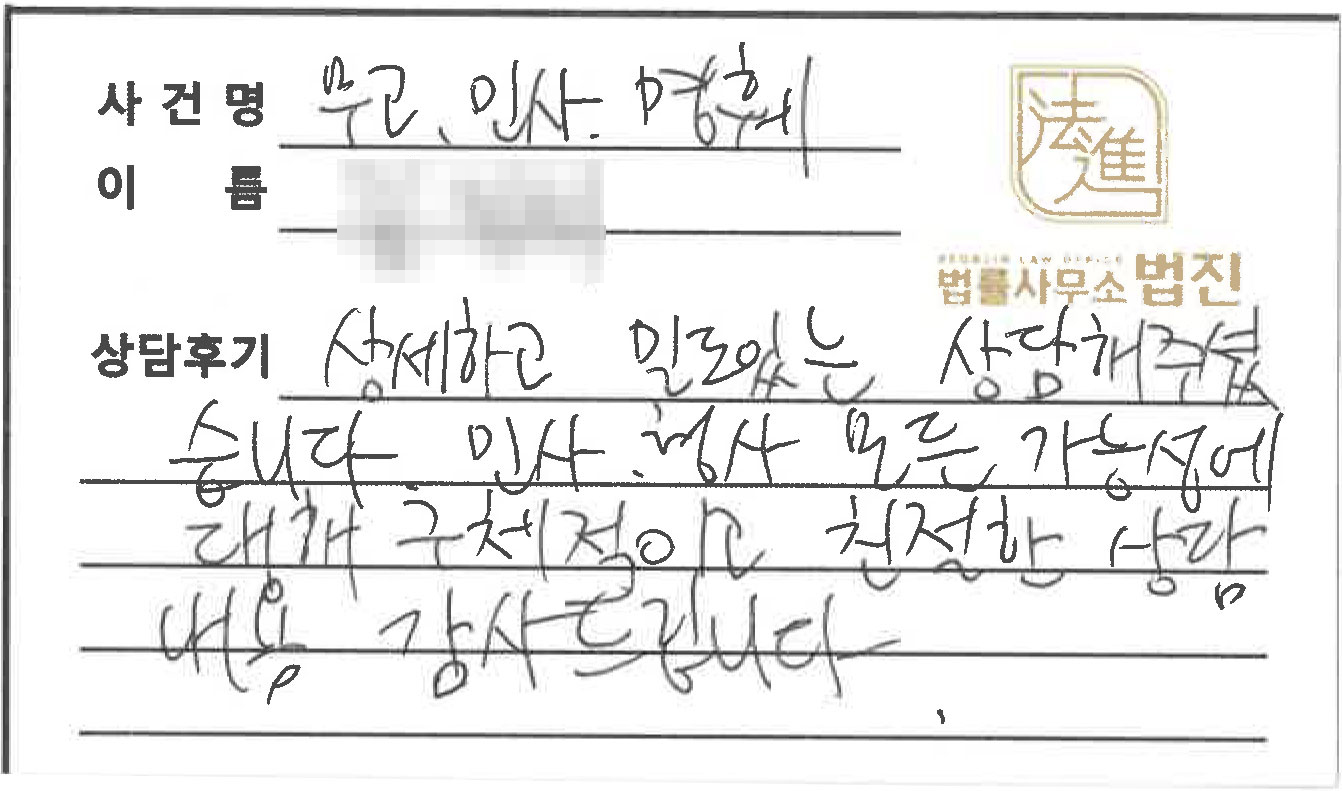 사건명 무고, 민사. 명훼
이 름
法進
법률사무소 법진
상담후기 상세하고 밀도있는 상담해주셨
습니다. 민사.형사 모든 가능성에
대해 구체적이고 친절한 상담
내용 감사드립니다.